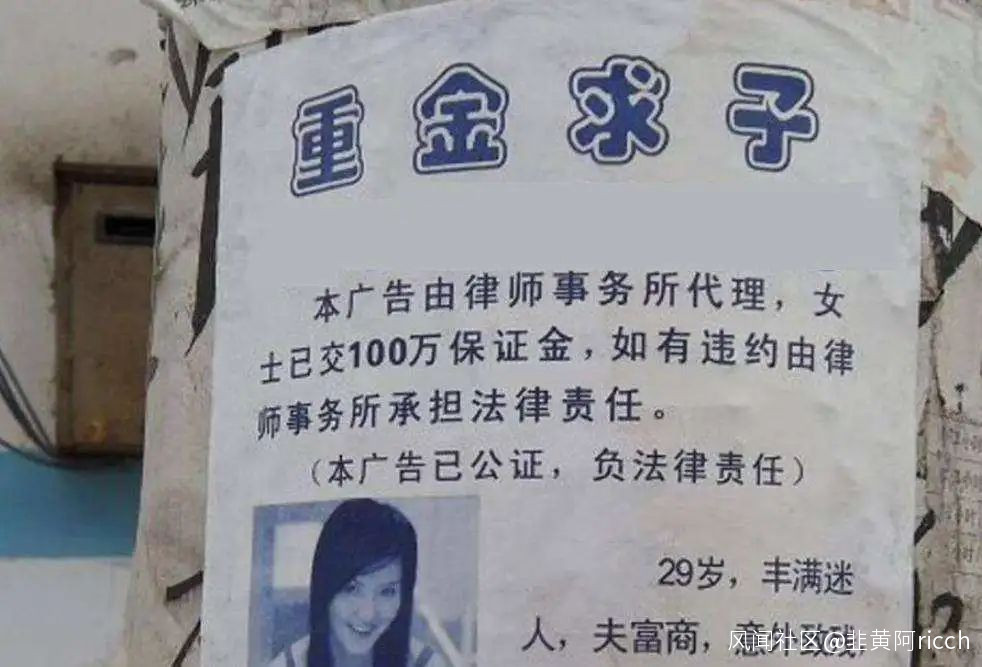 重金求子
本广告由律师事务所代理，女
士已交100万保证金，如有违约由律
师事务所承担法律责任。
（本广告已公证，负法律责任）
29岁，丰满迷
人，夫富商，意外致残
风闻社区@韭黄阿ricch